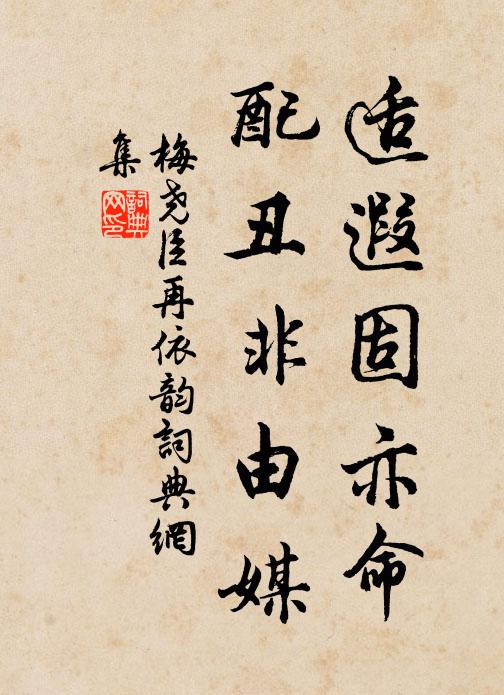 适遐固亦命
配丑非由媒
梅尧臣再依韵詞典網
集
詞典
网印